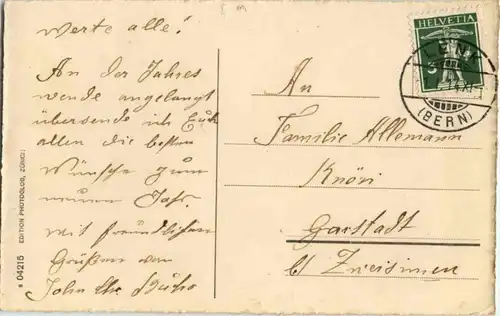 Werte alle!
An der Jahres
wende angelangt
übersende ich Euch
allen die besten
Wünsche zum
neuen Jahr.
Mit freundlichen
Grüßen von
John
An
Familie Allemann
Garstadt
b/ Zweisimmen
HELVETIA
LENK
(BERN)
EDITION PHOTOGLOB, ZÜRICH
04215